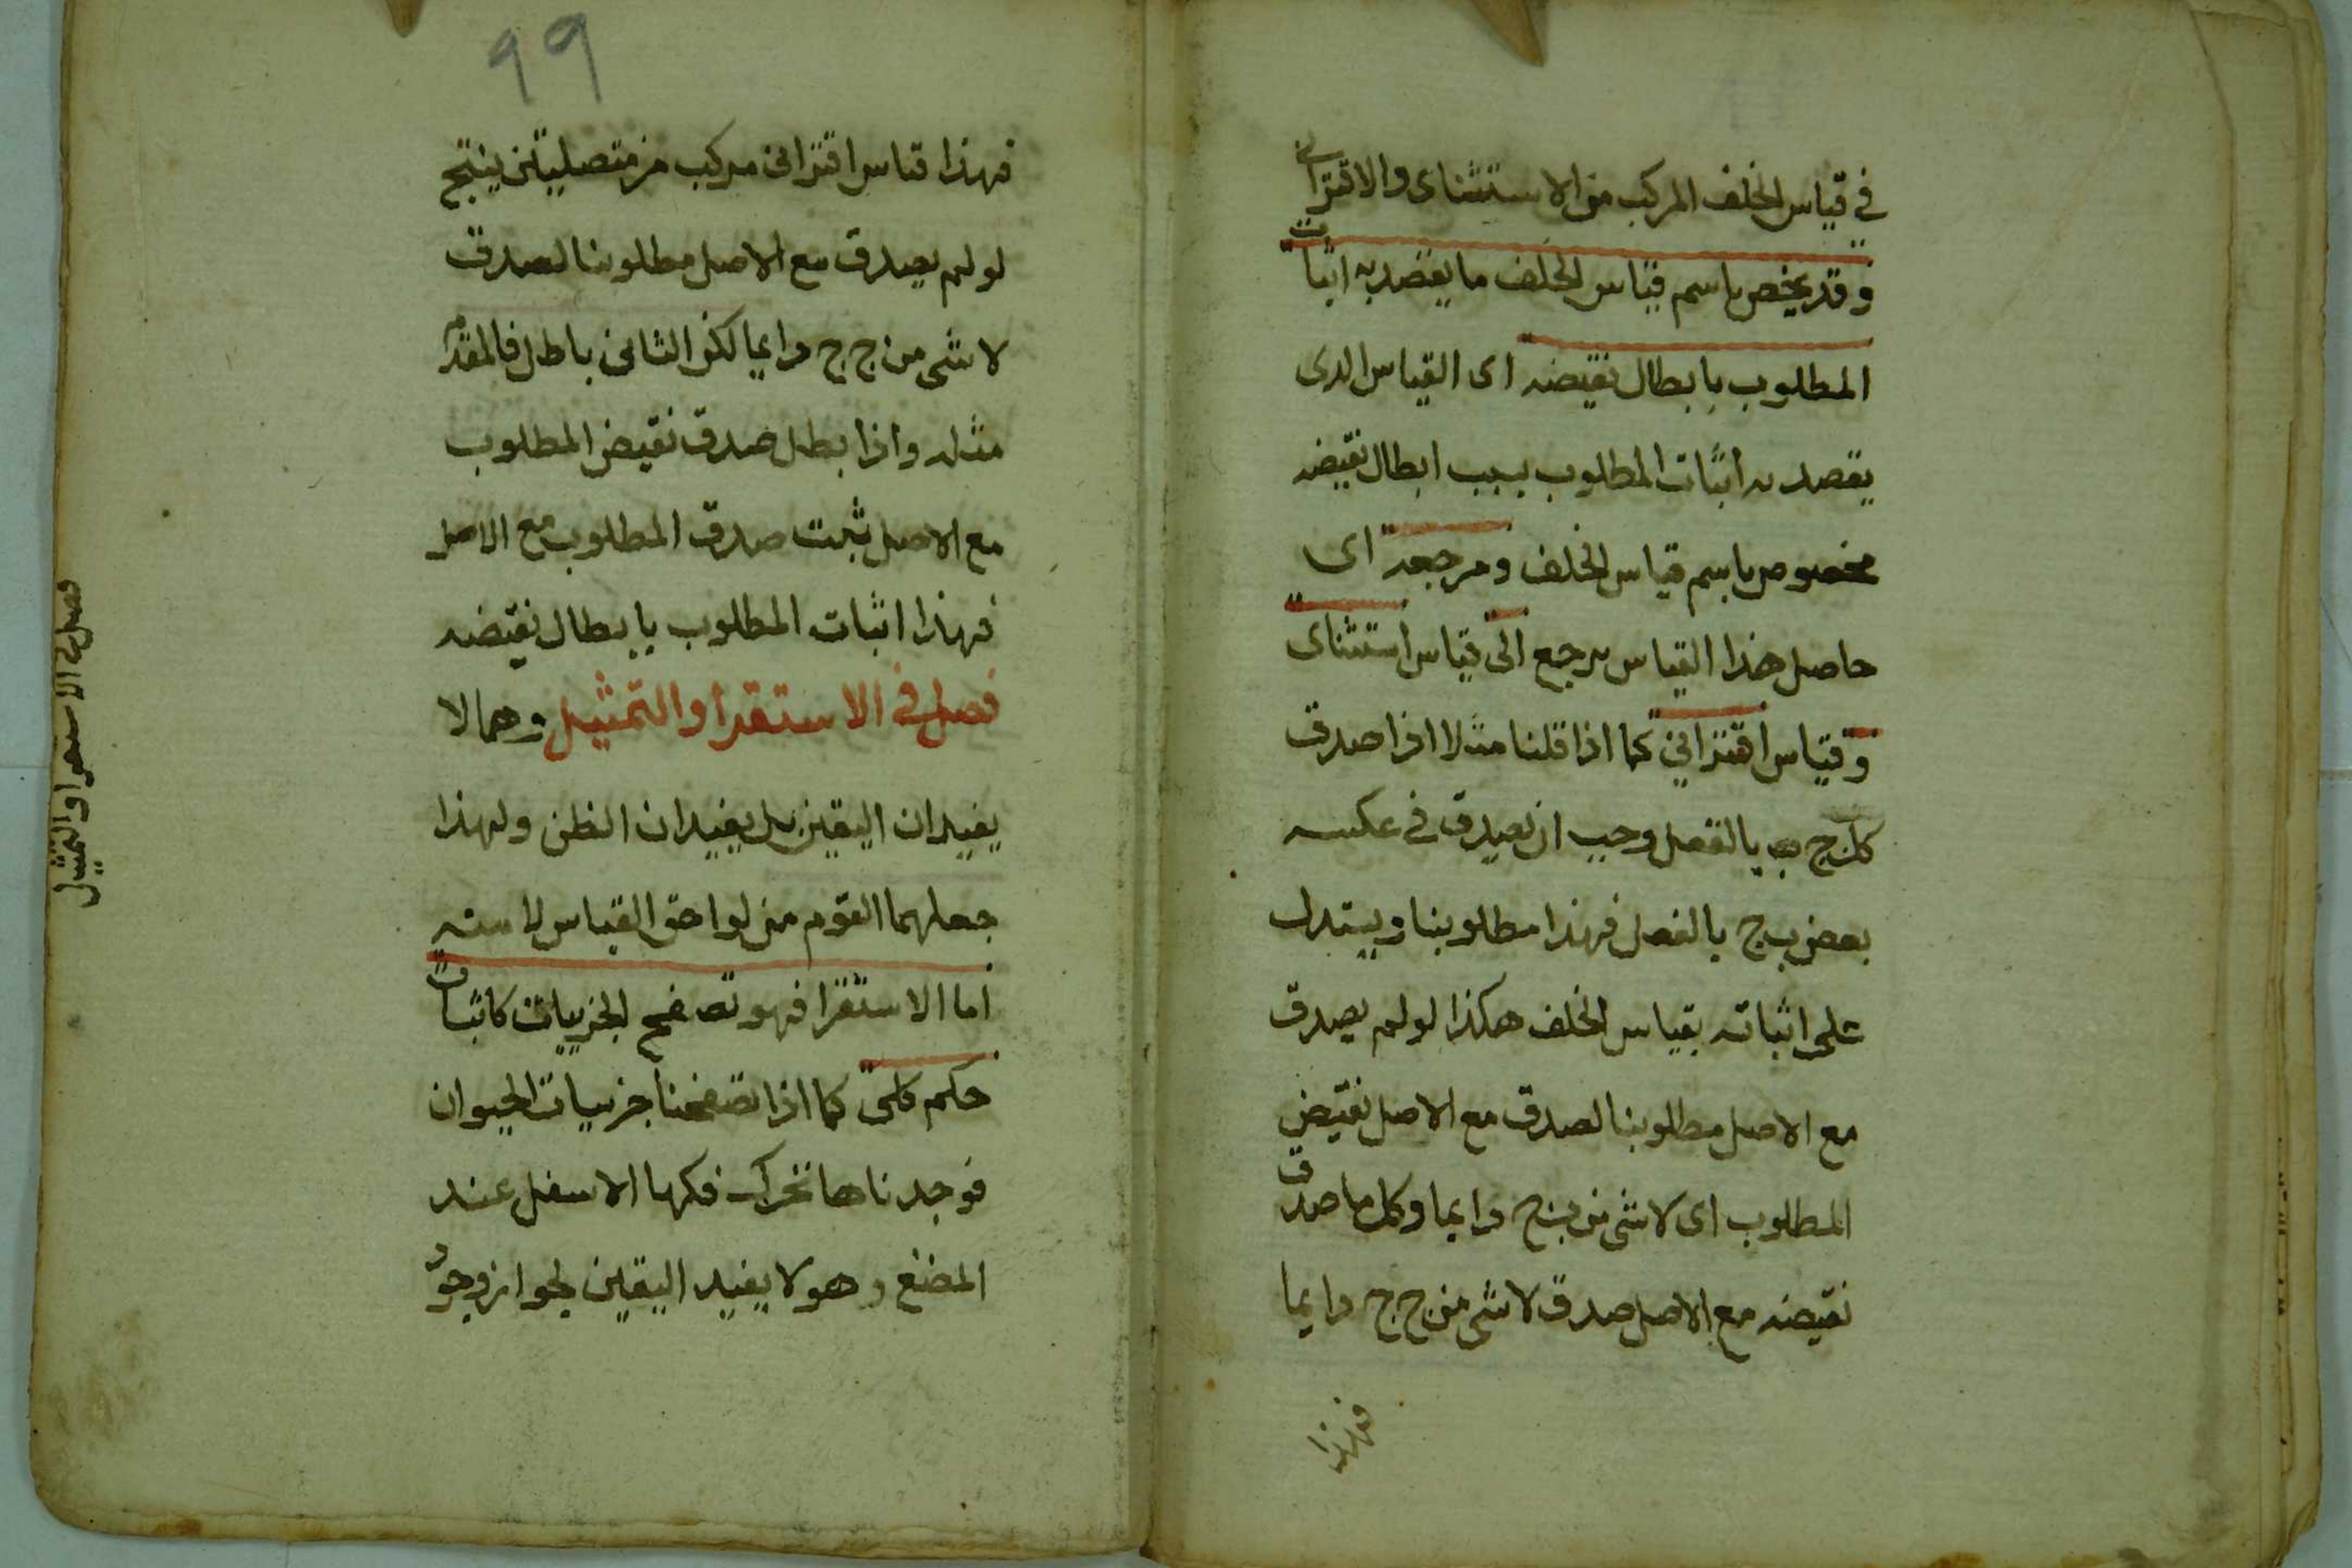 في قياس الخلف المركب من الاستثناى والاقترانى
وقد يخص باسم قياس الخلف ما يقصد به اثبات
المطلوب بابطال نقيضه اى القياس الدى
يقصد به اثبات المطلوب بسبب ابطال نقيضه
مخصوص باسم قياس الخلف ومرجعه اى
حاصل هذا القياس يرجع الى قياس استثناى
وقياس اقترانى كما اذا قلنا مثلا اذا صدق
كل ج ب بالفعل وجب ان يصدق في عكسه
بعض ب ج بالفعل فهذا مطلوبنا ويستدل
على اثباته بقياس الخلف هكذا لو لم يصدق
مع الاصل مطلوبنا لصدق مع الاصل نقيض
المطلوب اى لا شى من ب ج دايما وكل ما صدق
نقيضه مع الاصل صدق لا شى من ج ج دايما
فهذا
٩٩
فهذا قياس اقترانى مركب من متصليتين ينتج
لو لم يصدق مع الاصل مطلوبنا لصدق
لا شى من ج ج دايما لكن الثانى باطل فالمقدم
مثله واذا بطل صدق نقيض المطلوب
مع الاصل ثبت صدق المطلوب مع الاصل
فهذا اثبات المطلوب بابطال نقيضه
فصل في الاستقرا والتمثيل وهما لا
يفيدان اليقين بل يفيدان الظن ولهذا
جعلهما القوم من لواحق القياس
اما الاستقرا فهو تصفح الجزييات لاثبات
حكم كلى كما اذا تصفحنا جزييات الحيوان
فوجدناها تحرك فكها الاسفل عند
المضغ وهو لا يفيد اليقين لجواز وجود
فصل في الاستقرا والتمثيل